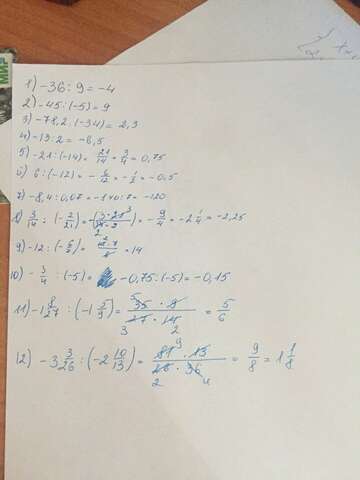 1) -36 : 9 = -4
2) -45 : (-5) = 9
3) -78,2 : (-34) = 2,3
4) -13 : 2 = -6,5
5) -21 : (-14) = 21/14 = 3/4 = 0,75
6) 6 : (-12) = -6/12 = -1/2 = -0,5
7) -8,4 : 0,07 = -840 : 7 = -120
8) 3/14 : (-2/21) = (3·21 3)/(14·2) 2 = -9/4 = -2 1/4 = -2,25
9) -12 : (-6/7) = 12·7/6 = 14
10) -3/4 : (-5) = -0,75 : (-5) = -0,15
11) -1 8/27 : (-1 5/9) = 5 35 · 9/27 · 14 3 2 = 5/6
12) -3 3/26 : (-2 10/13) = 81 9 · 13/26 · 36 2 4 = 9/8 = 1 1/8
МИР